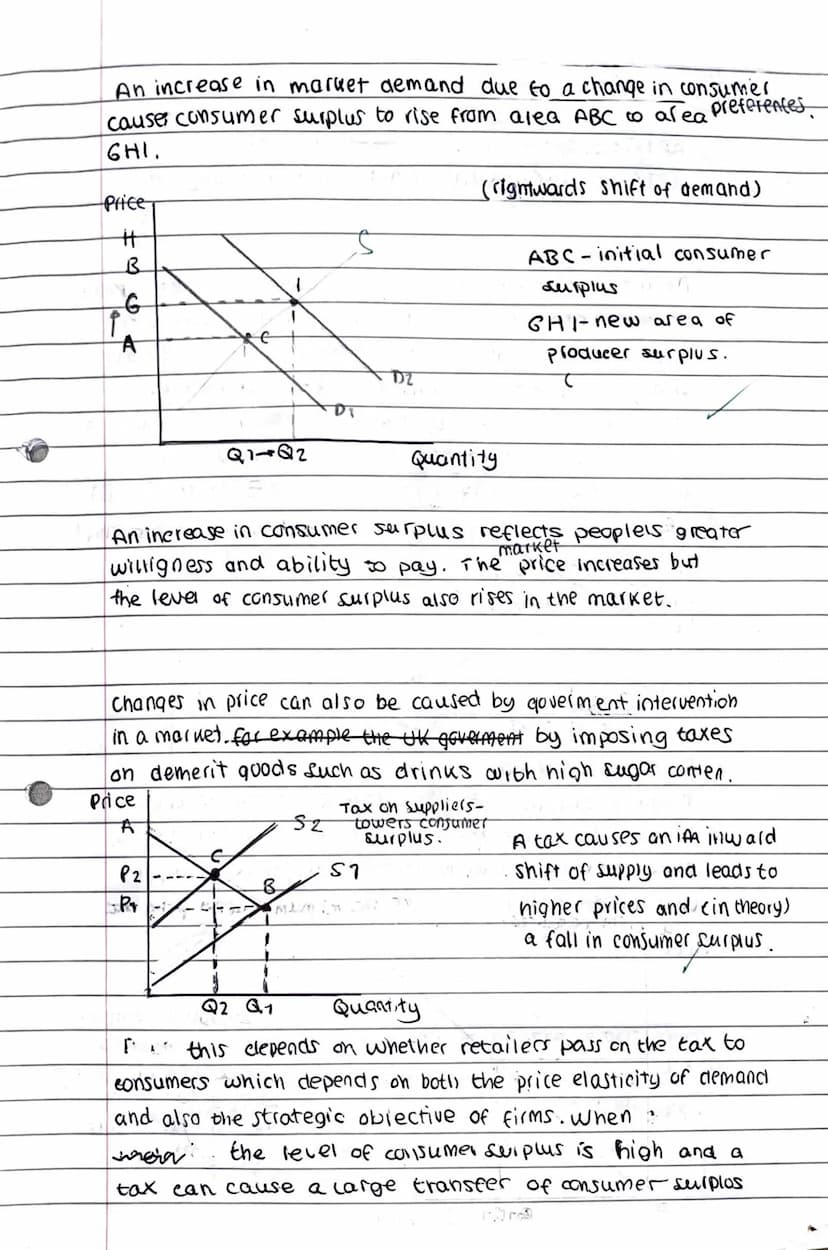 An increase in market demand due to a change in consumer
causes consumer surplus to rise from area ABC to area preferences.
GHI.
(rigntwards shift of demand)
Price
H
B
G
A
S
I
C
D2
D1
Q1→Q2
Quantity
ABC - initial consumer
surplus
GHI - new area of
producer surplus.
(
=
An increase in consumer surplus reflects people's greater
willigness and ability to pay. The market price increases but
the level of consumer surplus also rises in the market.
changes in price can also be caused by goverment intervention
in a market. for example the UK goverment by imposing taxes
on demerit goods such as drinks with high sugar conten.
Price
A
P2
P1
C
B
S2
S1
Q2 Q1
Quantity
Tax on suppliers-
lowers consumer
surplus.
A tax causes an inward
shift of supply and leads to
higher prices and (in theory)
a fall in consumer surplus.
this depends on whether retailers pass on the tax to
consumers which depends on both the price elasticity of demand
and also the strategic objective of firms. When
the level of consumer surplus is high and a
tax can cause a large transfer of consumer surplus